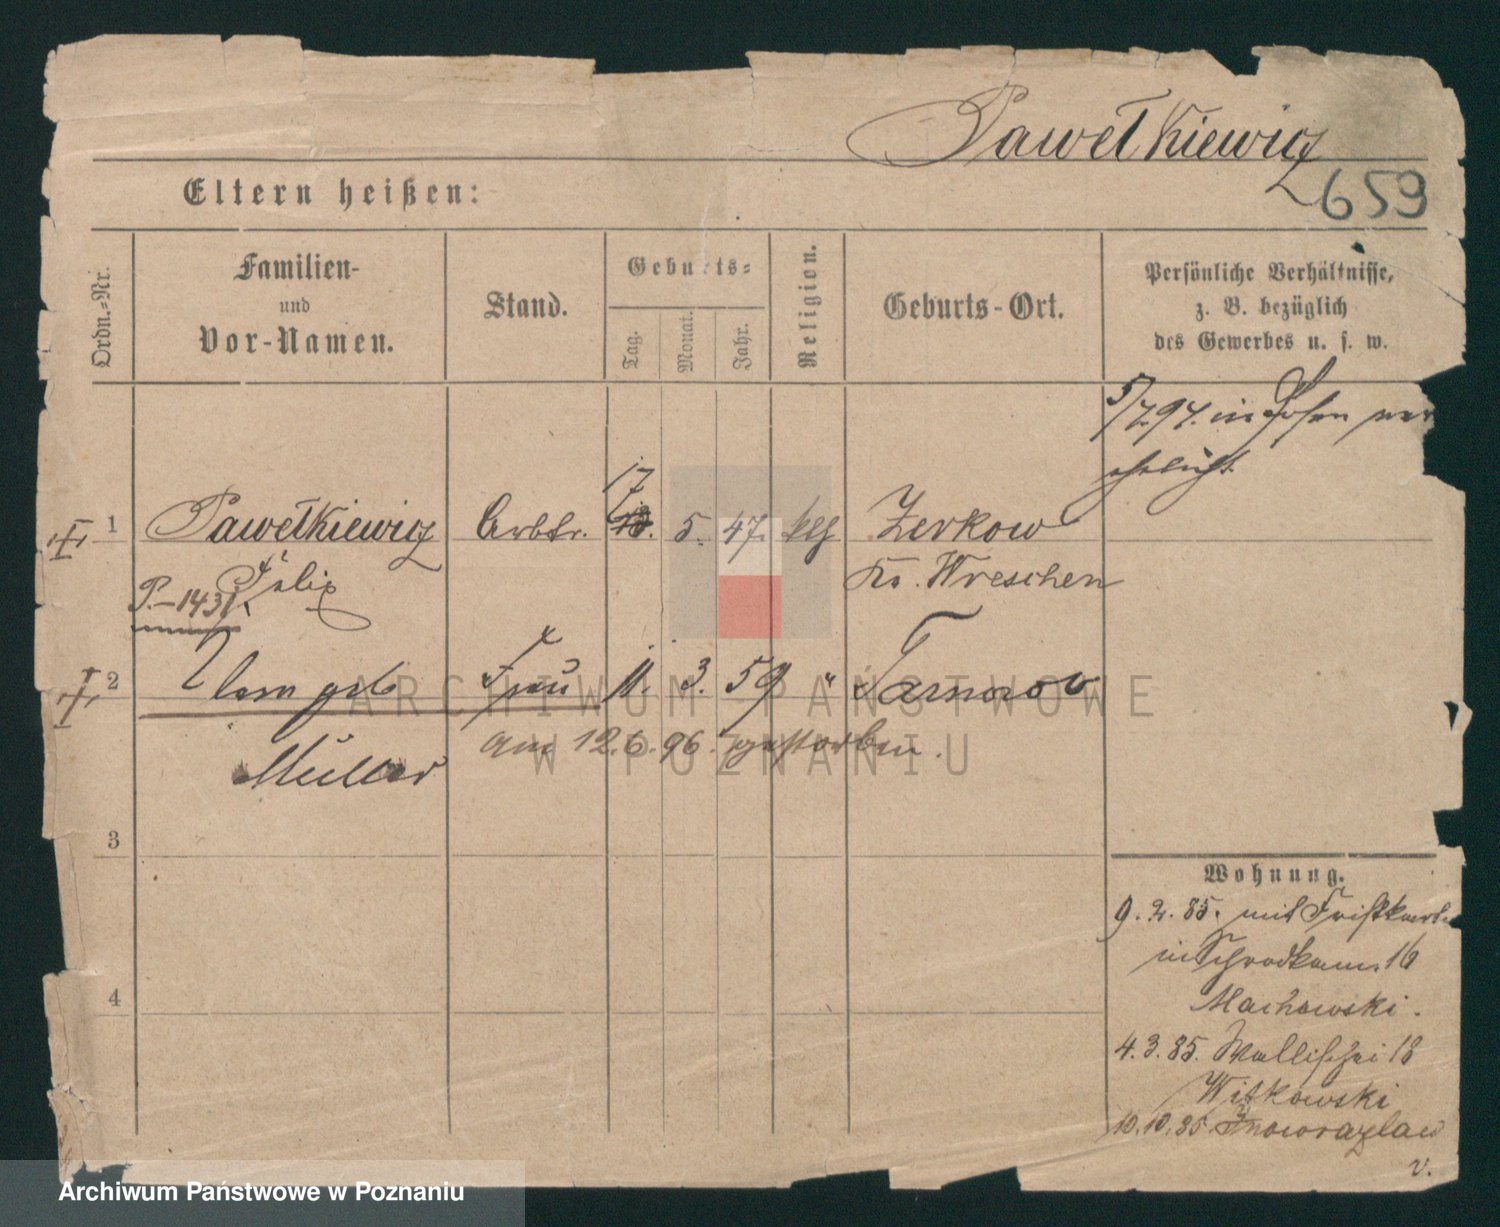 Pawełkiewicz
659
Eltern heißen:
Ordn.-Nr.
Familien-
und
Vor-Namen.
Stand.
Geburts-
Tag.
Monat.
Jahr.
Religion.
Geburts-Ort.
Persönliche Verhältnisse,
z. B. bezüglich
des Gewerbes u. s. w.
5/7.97. in Posen ver
ehelicht
17
1 Pawełkiewicz Arbtr. 5. 47. kth Zerkow
Felix Kr. Wreschen
P.-1431
2 geb Frau 11. 3. 59 " Tarnowo
Müller am 12.6.96. gestorben.
3
4
Wohnung.
9.2.85. mit Fristkart.
in Schrodkam. 16
Machowski.
4.3.85. Wallischei 18
Witkowski
10.10.85. Inowrazlaw
v.
ARCHIWUM PAŃSTWOWE
W POZNANIU
Archiwum Państwowe w Poznaniu